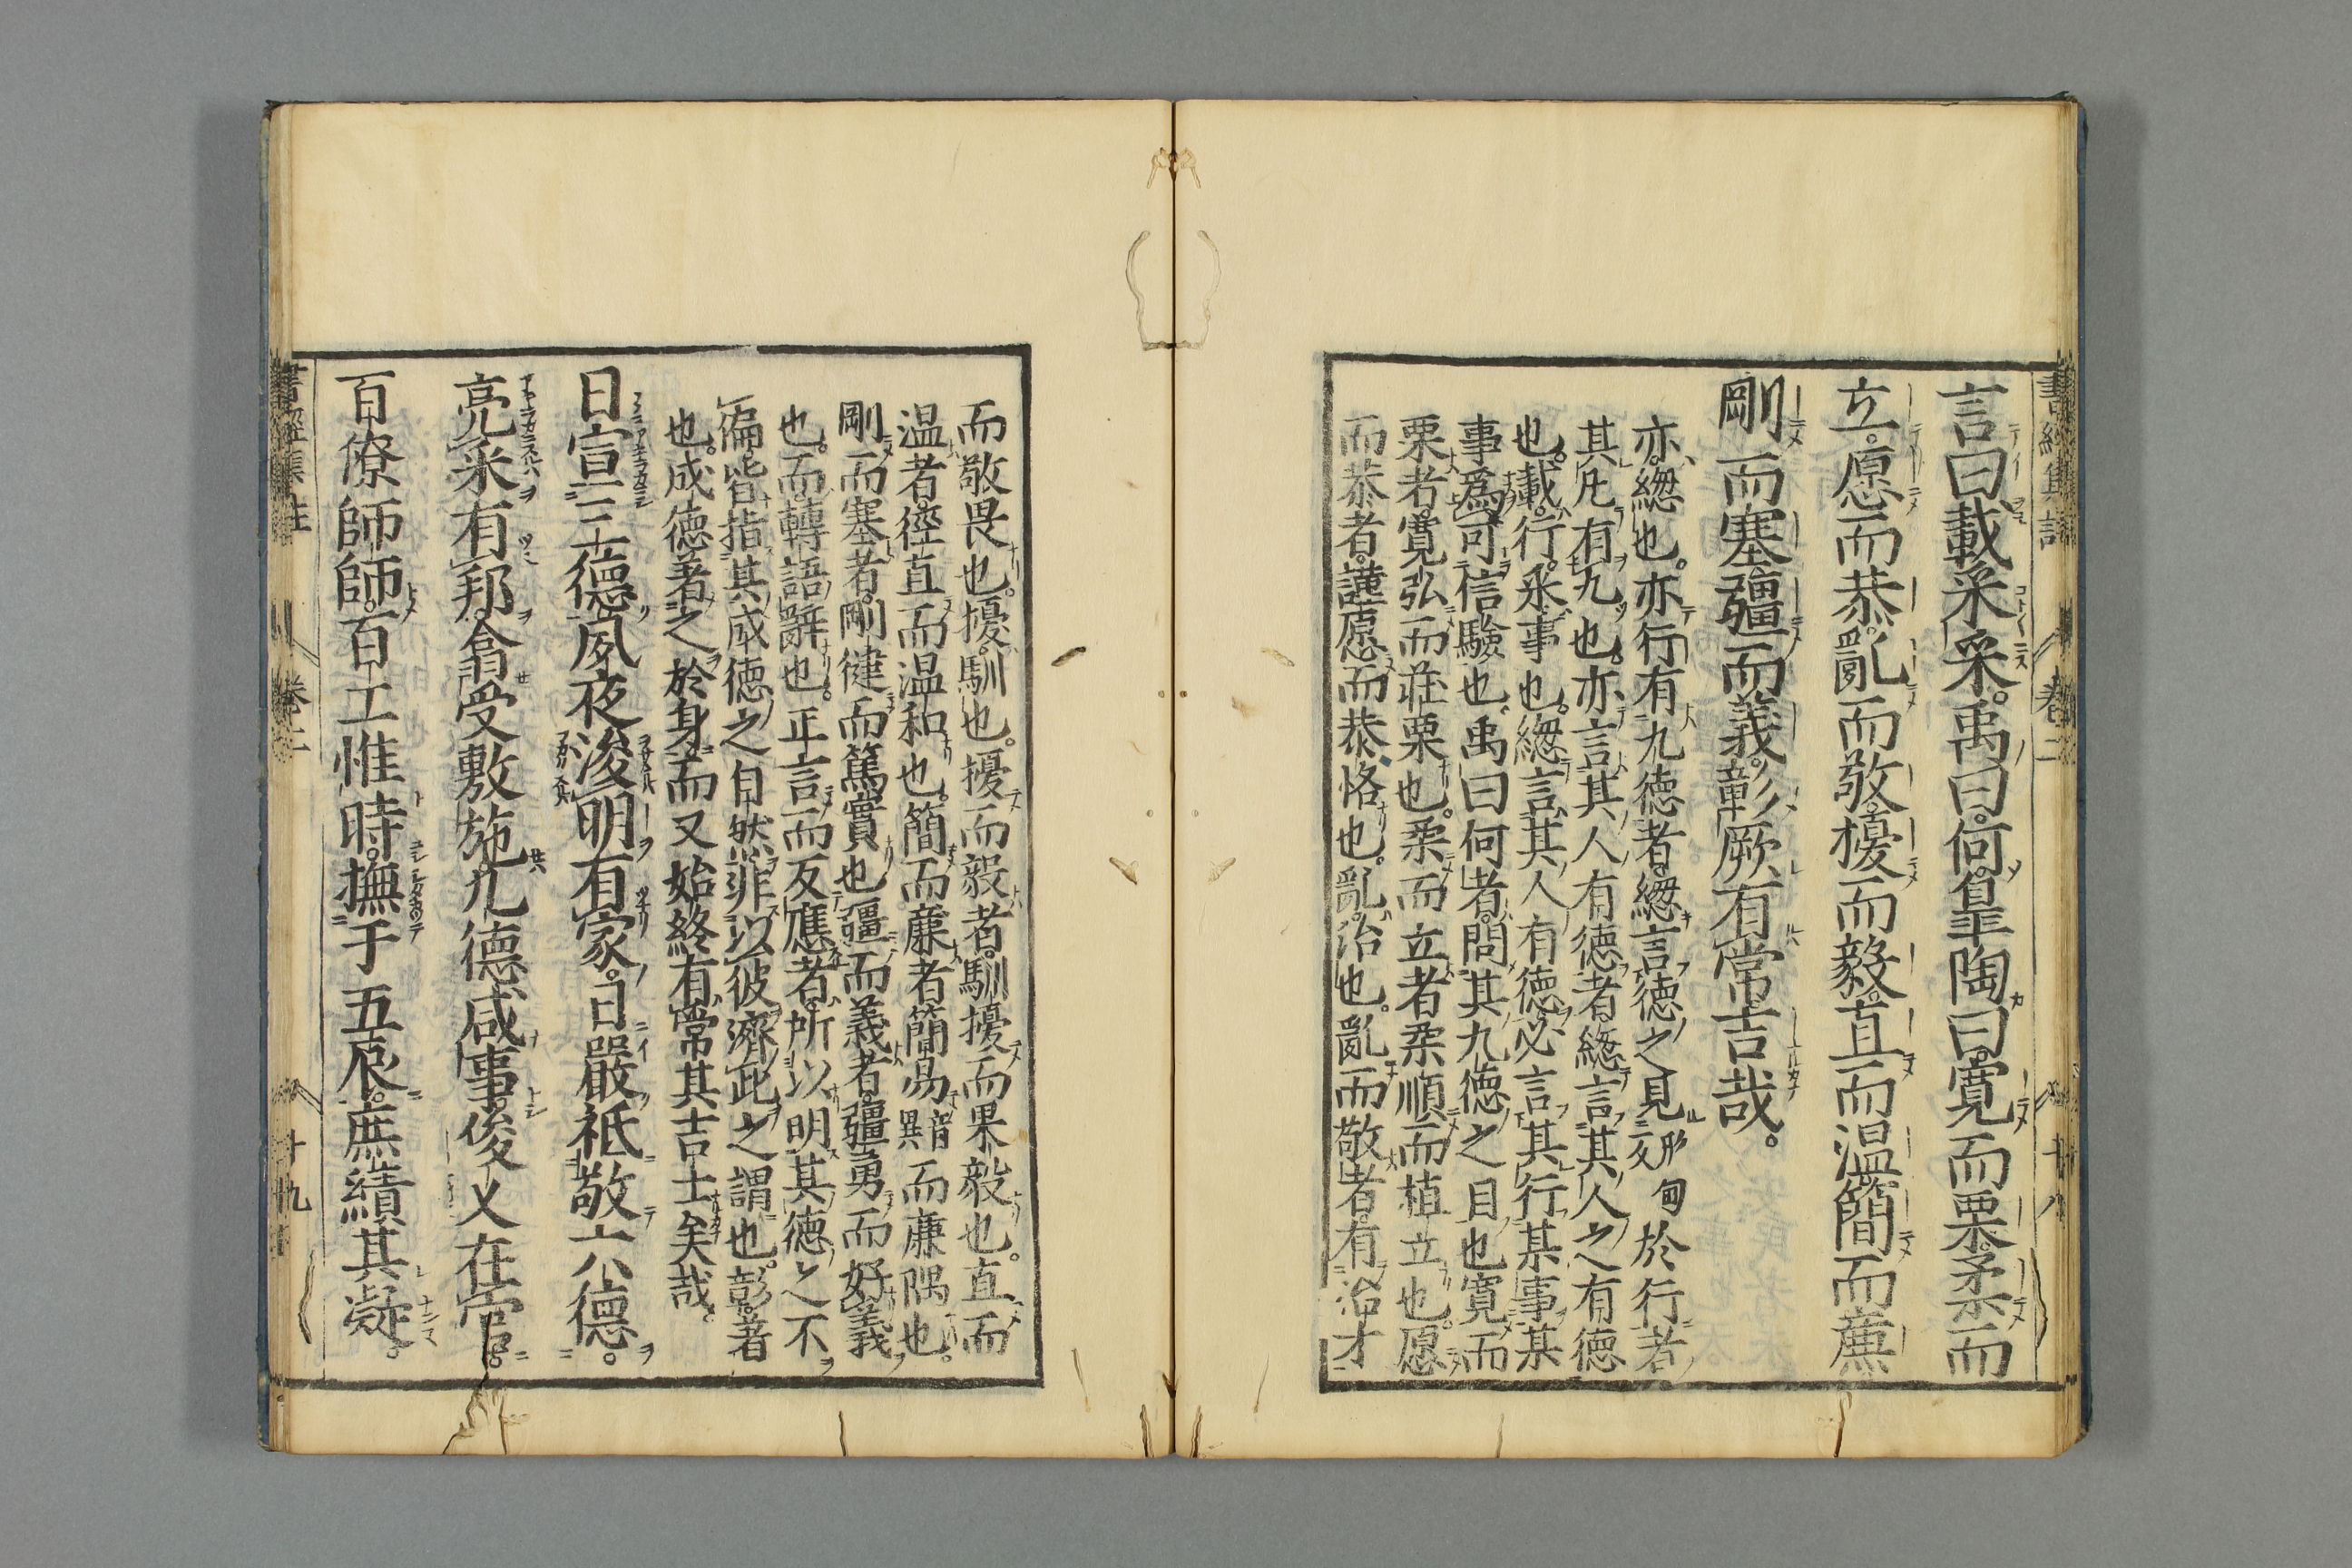 言曰載采采禹曰何皐陶曰寛而栗柔而
立愿而恭亂而敬擾而毅直而温簡而廉
剛而塞彊而義彰厥有常吉哉
亦總也亦行有九徳者總言徳之見於行者
其凡有九也亦言其人有徳者總言其人之有徳
也載行采事也總言其人有徳必言其行某事某
事爲可信驗也禹曰何者問其九徳之目也寛而
栗者寛弘而莊栗也柔而立者柔順而植立也愿
而恭者謹愿而恭恪也亂治也亂而敬者有治才
而敬畏也擾馴也擾而毅者馴擾而果毅也直而
温者徑直而温和也簡而廉者簡易而廉隅也
剛而塞者剛健而篤實也彊而義者彊勇而好義
也而轉語辭也正言而反應者所以明其徳之不
偏皆指其成徳之自然非以彼濟此之謂也彰著
也成徳著之於身而又始終有常其吉士矣哉
日宣三德夙夜浚明有家日嚴祗敬六德
亮采有邦翕受敷施九德咸事俊乂在官
百僚師師百工惟時撫于五辰庶績其凝
書經集註 卷二 十九